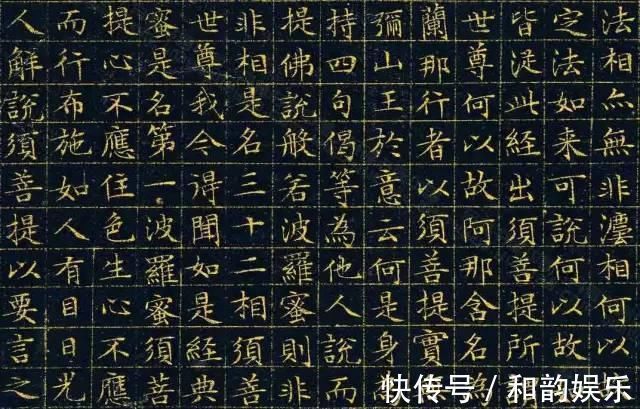 法相亦無非灋相何以
定法如來可說何以故
皆從此經出須菩提所
世尊何以故阿那含名
蘭那行者以須菩提實
彌山王於意云何是身
持四句偈等為他人說而
提佛說般若波羅蜜則非
非相是名三十二相須菩
世尊我今得聞如是經典
蜜是名第一波羅蜜須菩
提心不應住色生心不應
而行布施如人有目日光
人解說須菩提以要言之
快传号 / 和韵娱乐